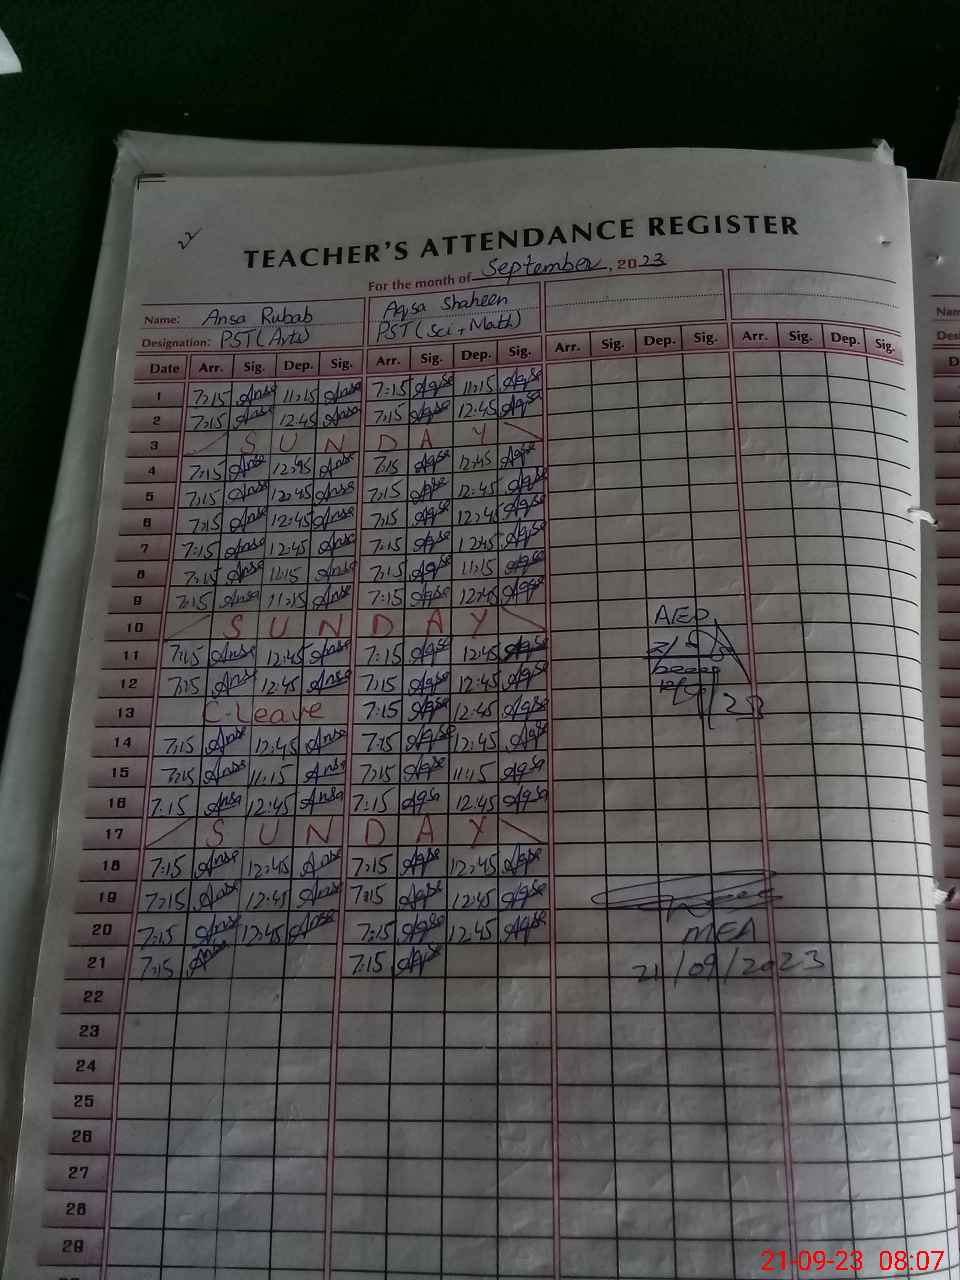 22
TEACHER'S ATTENDANCE REGISTER
For the month of September, 2023
Name: Ansa Rubab Aqsa Shaheen
Designation: PST (Arts) PST (Sci + Math)
Date Arr. Sig. Dep. Sig. Arr. Sig. Dep. Sig. Arr. Sig. Dep. Sig. Arr. Sig. Dep. Sig.
1 7:15 Ansa 11:15 Ansa 7:15 Aqsa 11:15 Aqsa
2 7:15 Ansa 12:45 Ansa 7:15 Aqsa 12:45 Aqsa
3 S U N D A Y
4 7:15 Ansa 12:45 Ansa 7:15 Aqsa 12:45 Aqsa
5 7:15 Ansa 12:45 Ansa 7:15 Aqsa 12:45 Aqsa
6 7:15 Ansa 12:45 Ansa 7:15 Aqsa 12:45 Aqsa
7 7:15 Ansa 12:45 Ansa 7:15 Aqsa 12:45 Aqsa
8 7:15 Ansa 11:15 Ansa 7:15 Aqsa 11:15 Aqsa
9 7:15 Ansa 11:15 Ansa 7:15 Aqsa 12:45 Aqsa
10 S U N D A Y
AEO
11 7:15 Ansa 12:45 Ansa 7:15 Aqsa 12:45 Aqsa
12 7:15 Ansa 12:45 Ansa 7:15 Aqsa 12:45 Aqsa
13 C-Leave 7:15 Aqsa 12:45 Aqsa
14 7:15 Ansa 12:45 Ansa 7:15 Aqsa 12:45 Aqsa
15 7:15 Ansa 11:15 Ansa 7:15 Aqsa 11:15 Aqsa
16 7:15 Ansa 12:45 Ansa 7:15 Aqsa 12:45 Aqsa
17 S U N D A Y
18 7:15 Ansa 12:45 Ansa 7:15 Aqsa 12:45 Aqsa
19 7:15 Ansa 12:45 Ansa 7:15 Aqsa 12:45 Aqsa
20 7:15 Ansa 12:45 Ansa 7:15 Aqsa 12:45 Aqsa MEA
21 7:15 Ansa 7:15 Aqsa 21/09/2023
22
23
24
25
26
27
28
29
21-09-23 08:07